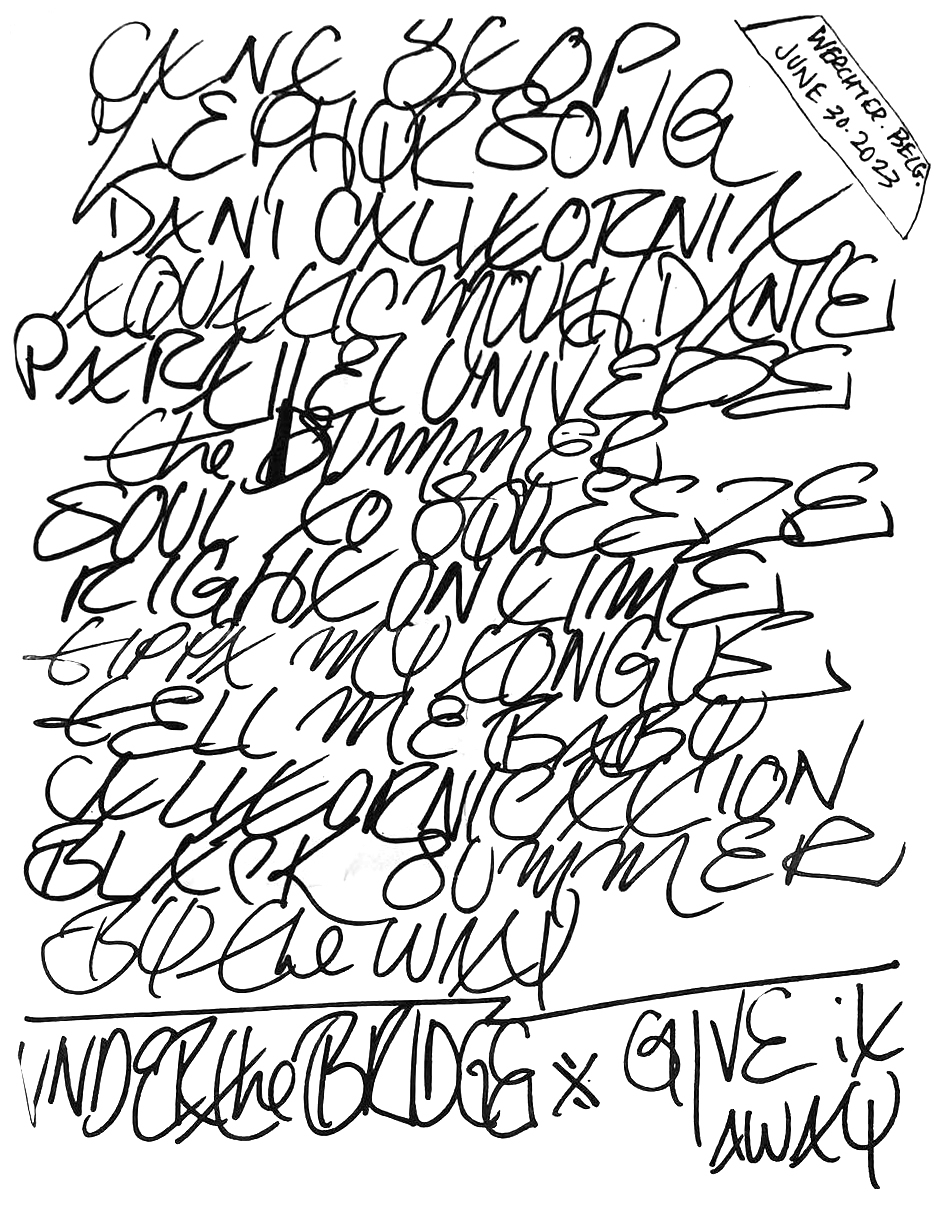 CAN'T STOP
WERCHTER. BELG.
JUNE 30. 2023
ZEPHYR SONG
DANI CALIFORNIA
AQUATIC MOUTH DANCE
PARALLEL UNIVERSE
the
SOUL TO SQUEEZE
RIGHT ON TIME
TIPPA MY TONGUE
TELL ME BABY
CALIFORNICATION
BLACK SUMMER
BY the WAY
UNDER the BRIDGE X GIVE it
AWAY